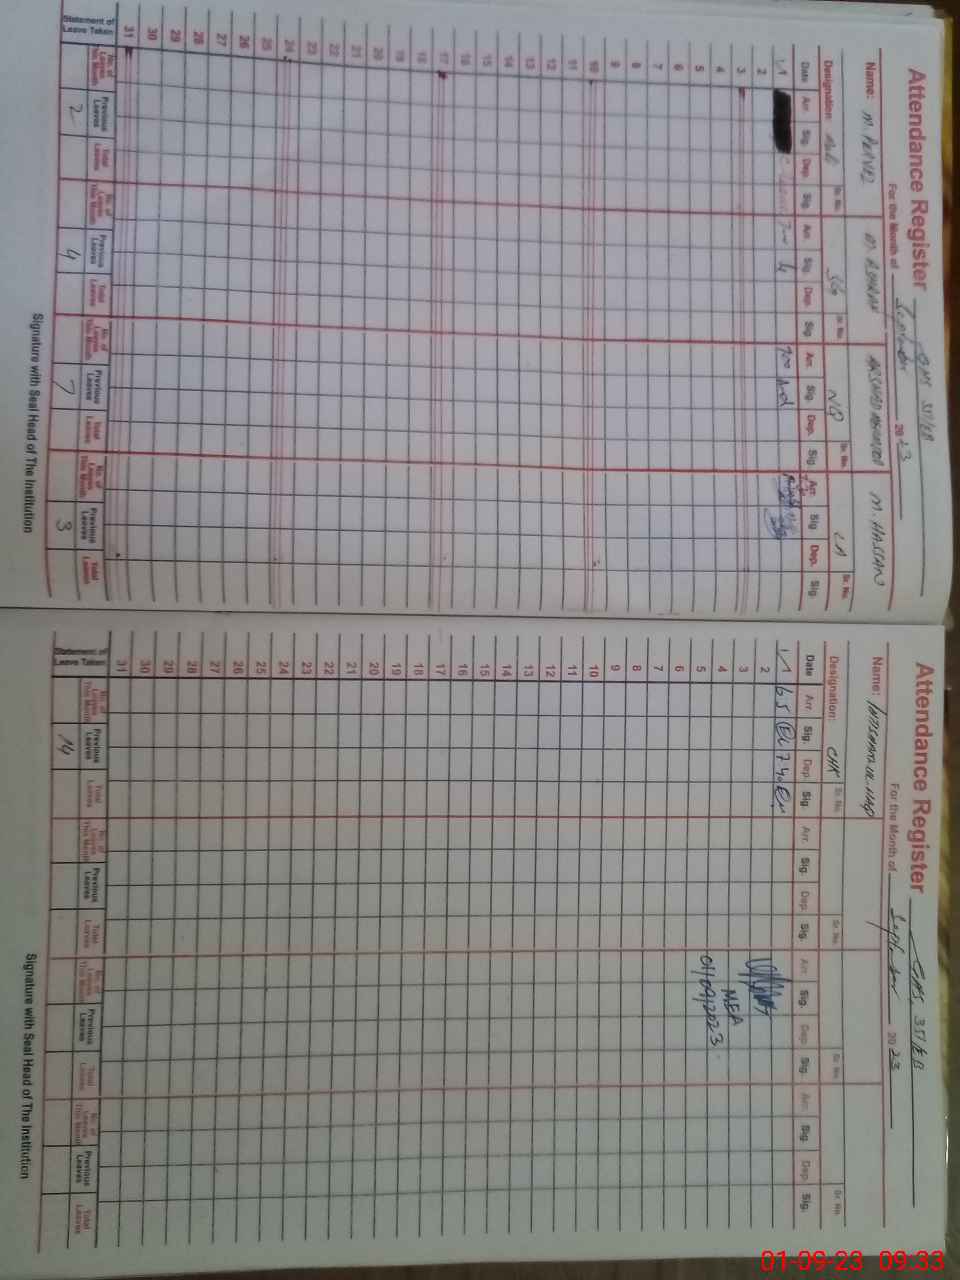 Attendance Register GHS 351/EB
For the Month of September 2023
Name: M. PERVEZ M. REHMAN ARSHAD M. HASSAN
Designation: Sr. No. Sr. No. NQ Sr. No. LA Sr. No.
Date Arr. Sig. Dep. Sig. Arr. Sig. Dep. Sig. Arr. Sig. Dep. Sig. Arr. Sig. Dep. Sig.
1 700 700
2
3
4
5
6
7
8
9
10
11
12
13
14
15
16
17
18
19
20
21
22
23
24
25
26
27
28
29
30
31
Statement of Leave Taken
No. of Leaves This Month Previous Leaves Total Leaves No. of Leaves This Month Previous Leaves Total Leaves No. of Leaves This Month Previous Leaves Total Leaves No. of Leaves This Month Previous Leaves Total Leaves
2 4 7 3
Signature with Seal Head of The Institution
Attendance Register GHS, 351/EB
For the Month of September 2023
Name:
Designation: CHK Sr. No. Sr. No. Sr. No. Sr. No.
Date Arr. Sig. Dep. Sig. Arr. Sig. Dep. Sig. Arr. Sig. Dep. Sig. Arr. Sig. Dep. Sig.
1
2
3 MEA
4
5 01/09/2023
6
7
8
9
10
11
12
13
14
15
16
17
18
19
20
21
22
23
24
25
26
27
28
29
30
31
Statement of Leave Taken
No. of Leaves This Month Previous Leaves Total Leaves No. of Leaves This Month Previous Leaves Total Leaves No. of Leaves This Month Previous Leaves Total Leaves No. of Leaves This Month Previous Leaves Total Leaves
14
Signature with Seal Head of The Institution
01-09-23 09:33